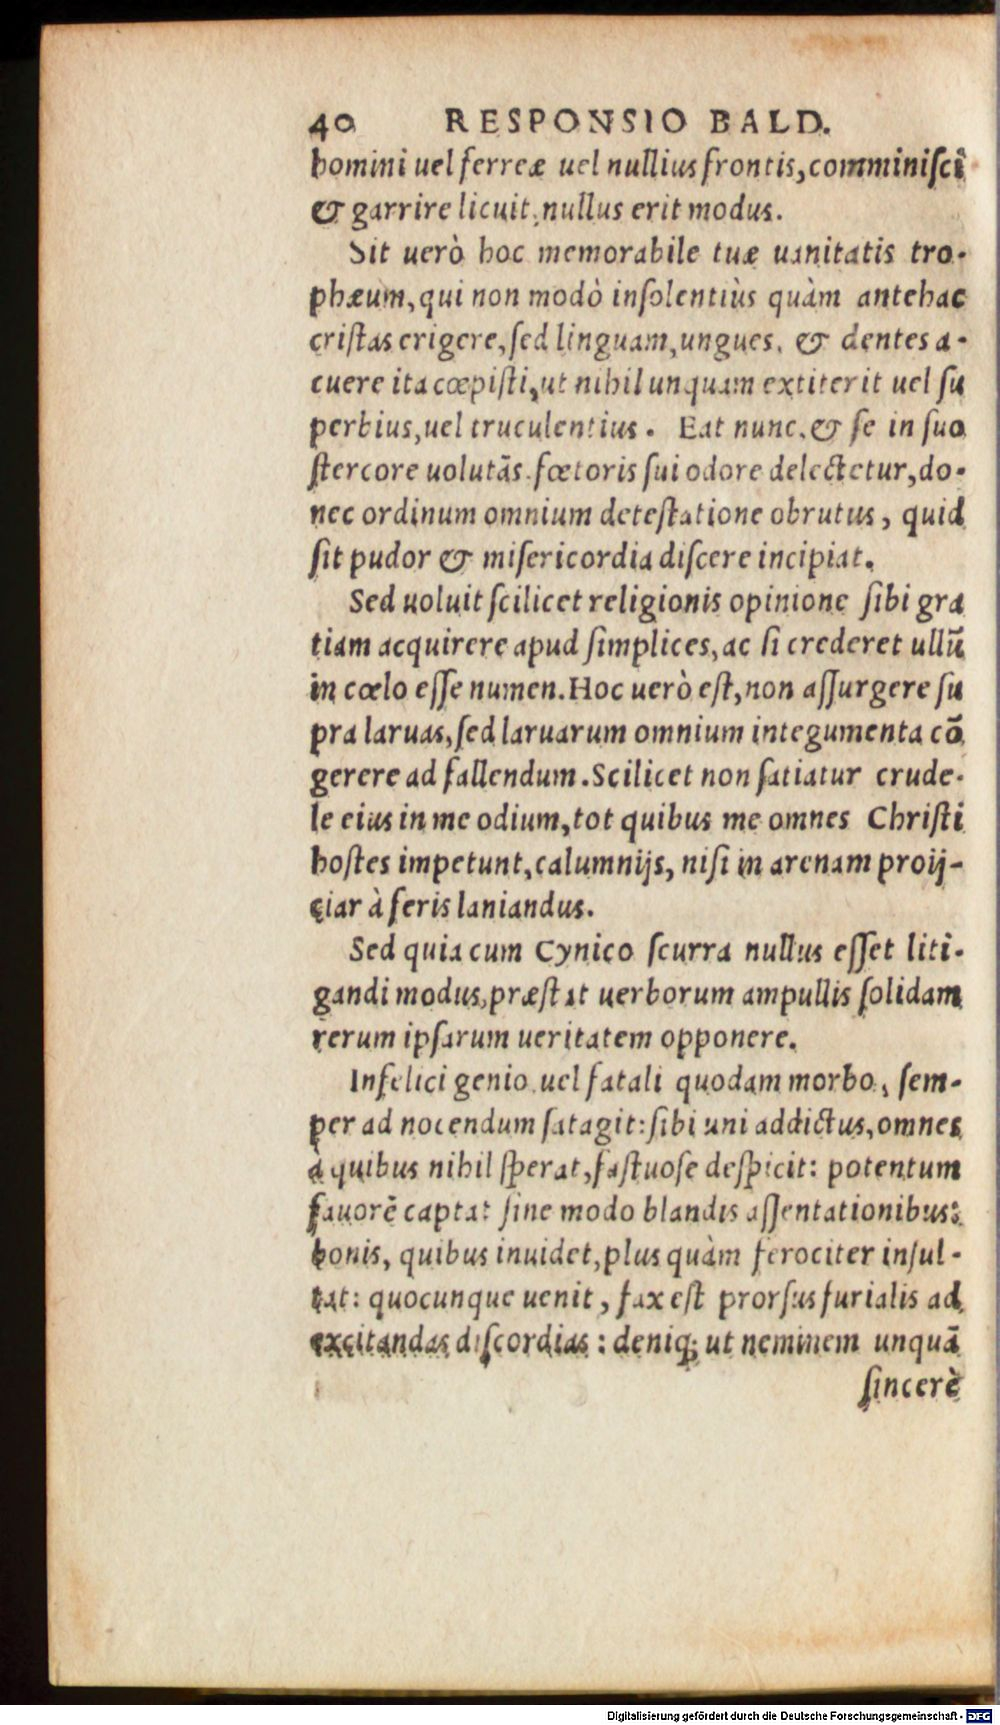 40 RESPONSIO BALD.
homini uel ferreæ uel nullius frontis, comminiſci
& garrire licuit, nullus erit modus.
Sit uerò hoc memorabile tuæ uanitatis tro-
phæum, qui non modò inſolentiùs quàm antehac
criſtas erigere, ſed linguam, ungues, & dentes a-
cuere ita cœpiſti, ut nihil unquam extiterit uel ſu
perbius, uel truculentius. Eat nunc, & ſe in ſuo
ſtercore uolutãs fœtoris ſui odore delectetur, do-
nec ordinum omnium deteſtatione obrutus, quid
ſit pudor & miſericordia diſcere incipiat.
Sed uoluit ſcilicet religionis opinione ſibi gra
tiam acquirere apud ſimplices, ac ſi crederet ullũ
in cœlo eſſe numen. Hoc uerò eſt, non aſſurgere ſu
pra laruas, ſed laruarum omnium integumenta cõ
gerere ad fallendum. Scilicet non ſatiatur crude-
le eius in me odium, tot quibus me omnes Chriſti
hoſtes impetunt, calumnijs, niſi in arenam proij-
ciar à feris laniandus.
Sed quia cum Cynico ſcurra nullus eſſet liti-
gandi modus, præſtat uerborum ampullis ſolidam
rerum ipſarum ueritatem opponere.
Infelici genio uel fatali quodam morbo, ſem-
per ad nocendum ſatagit: ſibi uni addictus, omnes
à quibus nihil ſperat, faſtuoſe deſpicit: potentum
fauorẽ captat ſine modo blandis aſſentationibus:
bonis, quibus inuidet, plus quàm ferociter inſul-
tat: quocunque uenit, fax eſt prorſus furialis ad
excitandas diſcordias: deniq; ut neminem unquã
ſincerè
Digitalisierung gefördert durch die Deutsche Forschungsgemeinschaft - DFG